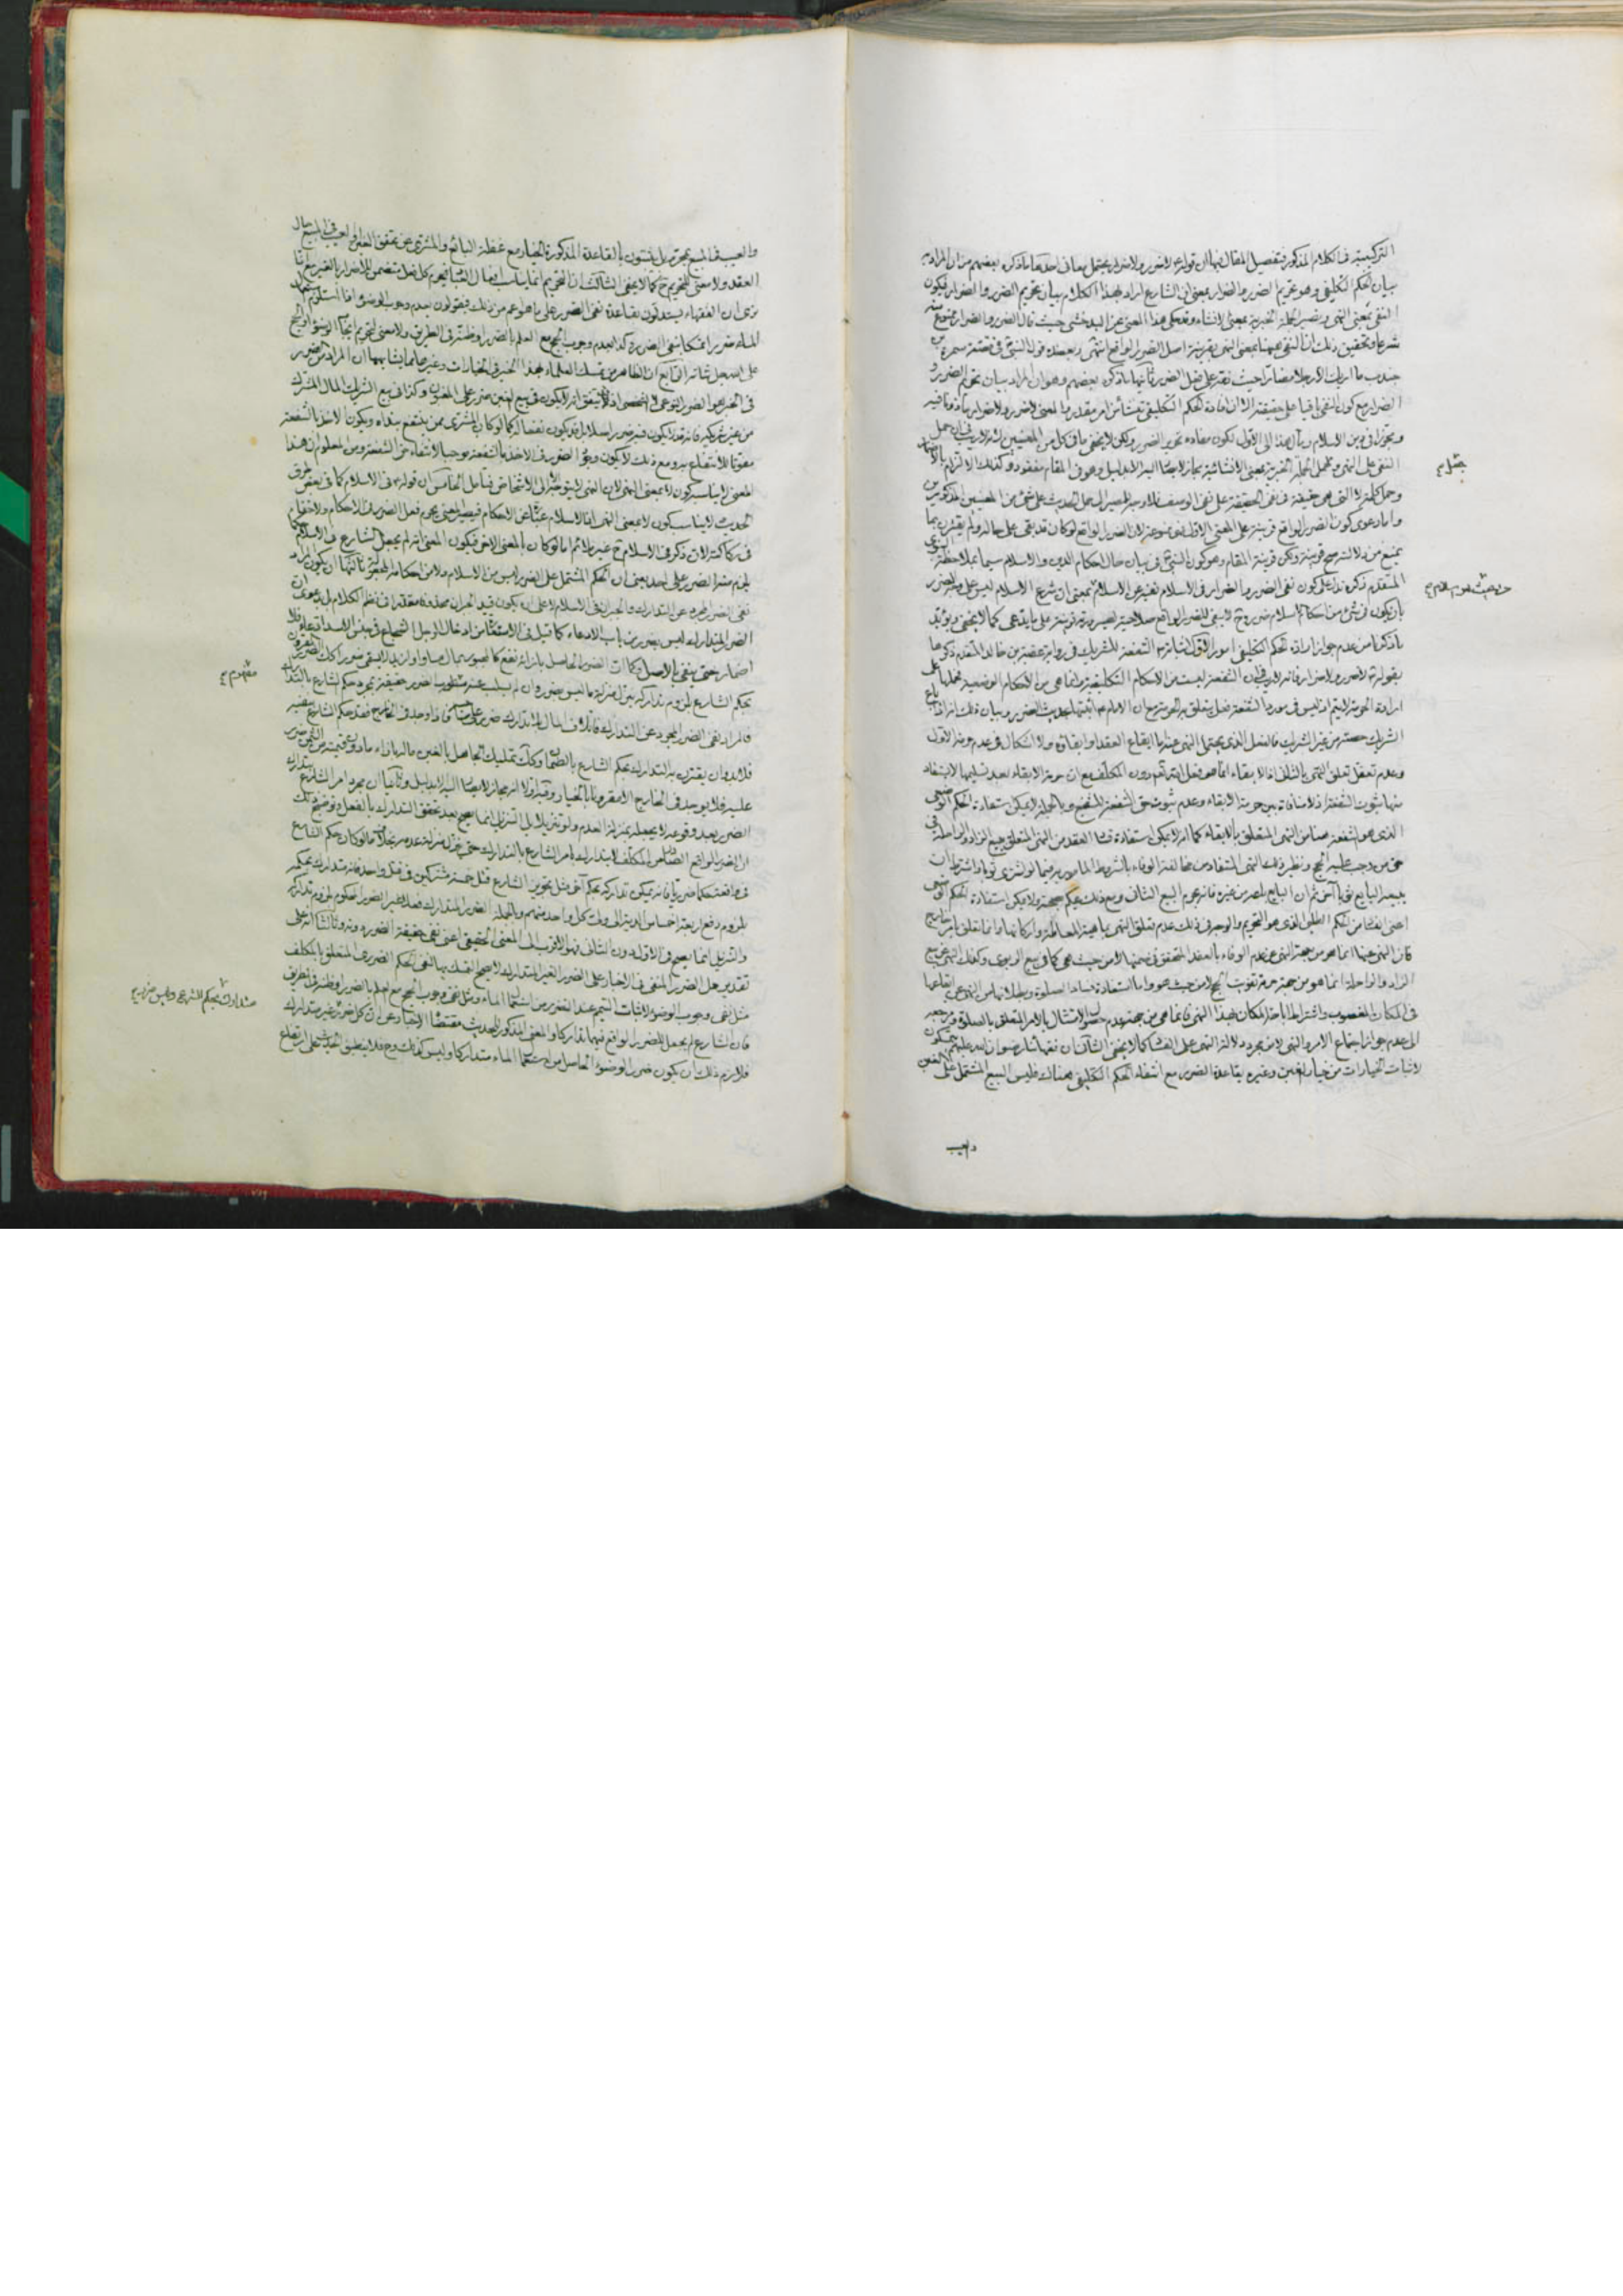 التركيبية في الكلام المذكور فتفصيل المقال فيها ان قوله لا ضرر ولا ضرار يحتمل معاني احدها ما ذكره بعضهم من ان المراد به
بيان الحكم التكليفي وهو تحريم الضرر والضرار بمعنى ان الشارع اراد بهذا الكلام بيان تحريم الضرر والضرار فيكون
النفي بمعنى النهي وتصير الجملة الخبرية بمعنى الانشاء وقد حكى هذا المعنى عن البدخشي حيث قال الضرر والضرار ممنوع منه
شرعا وتحقيق ذلك ان النفي هيهنا بمعنى النهي بقرينة اصل الضرر الواقع انتهى ويعضده قول النبي في قصة سمرة بن
جندب ما اراك الا رجلا مضارا حيث نقد على فعل الضرر ثانيها ما ذكره بعضهم وهو ان المراد بيان تحريم الضرر و
الضرار مع كون النفي باقيا على حقيقته الا ان افادة الحكم التكليفي نشأ من امر مقدر بالمعنى لا ضرر ولا ضرار ماذونا فيه
ومجوزا في دين الاسلام ومآل هذا الى الاول لكون مفاده تحريم الضرر ولكن لا يخفى ما في كل من المعنيين لانه لا ريب في ان حمل
النفي على النهي وحمل الجملة الخبرية بمعنى الانشائية مجاز لا يصار اليه الا بدليل وهو في المقام مفقود وكذلك الالتزام بالاضمار
وحمل كلمة لا التي هي حقيقة في نفي الحقيقة على نفي الوصف فلا وجه للمصير الى حمل الحديث على شئ من المعنيين المذكورين
واما دعوى كون الضرر الواقع قرينة على المعنى الاول فممنوعة لان الضرر الواقع لو كان قد بقى على حاله ولم يقترن بما
يمنع من دلالته صح قرينة ولكن قرينة المقام وهو كون النبي في بيان حال احكام الدين والاسلام سيما بملاحظة النبوي
المتقدم ذكره تدل على كون نفي الضرر والضرار في الاسلام تفيد عن الاسلام بمعنى ان شرع الاسلام ليس على وجه الضرر
بان يكون في شئ من احكام الاسلام ضرر وح لا يبقى للضرر الواقع صلاحية لصيرورته قرينة على ما يدعى كما لا يخفى ويؤيد
ما ذكرنا من عدم جواز ارادة الحكم التكليفي امور الاول اثباته الشفعة للشريك في رواية عقبة بن خالد المتقدم ذكرها
بقوله لا ضرر ولا ضرار فانه لا ريب في ان الشفعة ليست من الاحكام التكليفية وانما هي من الاحكام الوضعية فحملها على
ارادة الحرمة لا يتم اذ ليس في مورد الشفعة فعل يتعلق به الحرمة مع ان الامام اثبتها بحديث الضرر وبيان ذلك انه اذا باع
الشريك حصته من غير الشريك فالفعل الذي يحتمل النهي عنه اما ايقاع العقد او ابقاؤه ولا اشكال في عدم حرمة الاول
وعدم تعقل تعلق النهي بالثاني اذ الابقاء انما هو فعل الله تعالى دون المكلف مع ان حرمة الابقاء بعد تسليمها لا يستفاد
منها ثبوت الشفعة اذ لا منافاة بين حرمة الابقاء وعدم ثبوت حق الشفعة للشفيع وبالجملة لا يمكن استفادة الحكم الوضعي
الذي هو الشفعة هنا من النهي المتعلق بالابقاء كما انه لا يمكن استفادة فساد العقد من النهي المتعلق ببيع الزاد والراحلة في
حق من وجب عليه الحج ونظير ذلك النهي المستفاد من مخالفة الوفاء بالشروط المامور به فيما لو اشترى ثوبا واشترط ان
يبيعه البايع ثوبا آخر ثم ان البايع باعه من غيره فانه يحرم البيع الثاني ومع ذلك يحكم بصحته ولا يمكن استفادة الحكم الوضعي
اعني الفساد من الحكم الطلبي الذي هو التحريم والوجه في ذلك عدم تعلق النهي بماهية المعاملة واركانها وانما تعلق بامر خارج
فان النهي فيها انما هو من جهة النهي عن عدم الوفاء بالعقد المتحقق في ضمنها لا من حيث هي كما في بيع الربوي وكذلك النهي عن بيع
الزاد والراحلة انما هو من جهة حرمة تفويت الحج لا من حيث هو واما استفادة فساد الصلوة وبطلانها من النهي عن ايقاعها
في المكان المغصوب واشتراط اباحة المكان لهذا النهي فانما هي من جهة عدم حصول الامتثال بالامر المتعلق بالصلوة فيرجع
الى عدم جواز اجتماع الامر والنهي لا من مجرد دلالة النهي على الفساد كما لا يخفى الثاني ان فقهائنا رضوان الله عليهم يتمسكون
لاثبات الخيارات من خيار الغبن وغيره بقاعدة الضرر مع انتفاء الحكم التكليفي هناك فليس البيع المشتمل على الغبن
والعيب
والعيب في المبيع بمحرم بل يثبتون بالقاعدة المذكورة الخيار مع غفلة البائع والمشتري عن تحقق الغبن او العيب في المبيع حال
العقد ولا معنى للتحريم ح كما لا يخفى الثالث ان التحريم انما يناسب افعال العباد فيحرم كل فعل يتضمن للاضرار بالغير مع انا
نرى ان الفقهاء يستدلون بقاعدة نفي الضرر على ما هو اعم من ذلك فيقولون بعدم وجوب الوضوء اذا استلزم استعمال
الماء ضررا تمسكا بنفي الضرر وكذا بعدم وجوب الحج مع العلم بالضرر او ظنه في الطريق ولا معنى لتحريم ايجاب الوضوء او الحج
على الله جل شانه الرابع ان الظاهر من تمسك العلماء بهذا الخبر في الخيارات وغيرها مما يشابهها ان المراد من الضرر
في الخبر هو الضرر النوعي لا الشخصي اذ قد يتفق انه لا يكون في بيع الغبن ضرر على المغبون وكذا في بيع الشريك المال المشترك
من غير شريكه فانه قد لا يكون فيه ضرر اصلا بل قد يكون نفعا له كما لو كان المشتري ممن ينتفع بنداه ويكون الاخذ بالشفعة
مفوتا للانتفاع به ومع ذلك لا يكون وجود الضرر في الاخذ بالشفعة موجبا لانتفاء حق الشفعة ومن المعلوم ان هذا
المعنى لا يناسب كون لا بمعنى النهي لان النهي لا يتوجه الا الى الاشخاص فتامل الخامس ان قوله في الاسلام كما في بعض طرق
الحديث لا يناسب كون لا بمعنى النهي اذ الاسلام عبارة عن الاحكام فيصير المعنى يحرم فعل الضرر في الاحكام ولا خفاء
في ركاكته لان ذكر في الاسلام ح غير ملائم اما لو كان بالمعنى الاخر فيكون المعنى انه لم يجعل الشارع في الاسلام حكما
يلزم منه الضرر على احد بمعنى ان الحكم المشتمل على الضرر ليس من الاسلام ولا من احكامه المحققة ثالثها ان يكون المراد
نفي الضرر المجرد عن التدارك والجبران في الاسلام لا على ان يكون قيد الجبران محذوفا مقدرا في نظم الكلام بل بدعوى ان
الضرر المتدارك ليس بضرر من باب الادعاء كما قيل في الاستعارة من ادخال الرجل الشجاع في جنس الاسد ادعاء فلا
اضمار حتى ينفى بالاصل وكما ان الضرر الحاصل بازائه نفع كالعبور بمال مساو او ازيد لا يسمى ضررا كك الضرر المقرون
بحكم الشارع بلزوم تداركه ينزل منزلة ما ليس بضرر وان لم يسلب عنه مفهوم الضرر حقيقة بمجرد حكم الشارع بالتدارك
فالمراد نفي الضرر المجرد عن التدارك فاتلاف المال بلا تدارك ضرر على صاحبه فاذا وجد في الخارج فقد حكم الشارع بنفيه
فلا بد وان يقترن به التدارك بحكم الشارع بالضمان وكذلك تمليك الجاهل بالغبن ماله بازاء ما دون قيمته من الثمن ضرر
عليه فلا يوجد في الخارج الا مقرونا بالخيار وفيه اولا انه مجاز لا يصار اليه الا بدليل وثانيا ان مجرد امر الشارع بتدارك
الضرر بعد وقوعه لا يجعله بمنزلة العدم ولو تنزيلا بل التنزيل انما يصح بعد تحقق التدارك بالفعل توضيح ذلك
ان الضرر الواقع الصادر من المكلف لا يتدارك بامر الشارع بالتدارك حتى ينزل منزلة عدمه بخلاف ما لو كان حكم الشارع
في واقعة حكما ضرريا فانه يمكن تداركه بحكم آخر مثل تجويز الشارع قتل خمسة مشتركين في قتل واحد فانه متدارك بحكمه
بلزوم دفع اربعة اخماس الدية الى ورثة كل واحد منهم وبالجملة الضرر المتدارك فعلا غير الضرر المحكوم بلزوم تداركه
والتنزيل انما يصح في الاول دون الثاني فهو الاقرب الى المعنى الحقيقي اعني نفي حقيقة الضرر دونه وثالثا انه على
تقدير حمل الضرر المنفي في الاخبار على الضرر الغير المتدارك لا يصح التمسك بها لنفي الحكم الضرري المتعلق بالمكلف
مثل نفي وجوب الوضوء لاثبات التيمم عند التضرر من استعمال الماء ومثل نفي وجوب الحج مع العلم بالضرر او ظنه في الطريق
فان الشارع لم يجعل للضرر الواقع فيهما تداركا والمعنى المذكور للحديث مقتضاه الاخبار عن ان كل ضرر غير متدارك
فلازم ذلك ان يكون ضرر الوضوء الحاصل من استعمال الماء متداركا وليس كذلك وح فلا ينطبق الحديث على ارتفاع